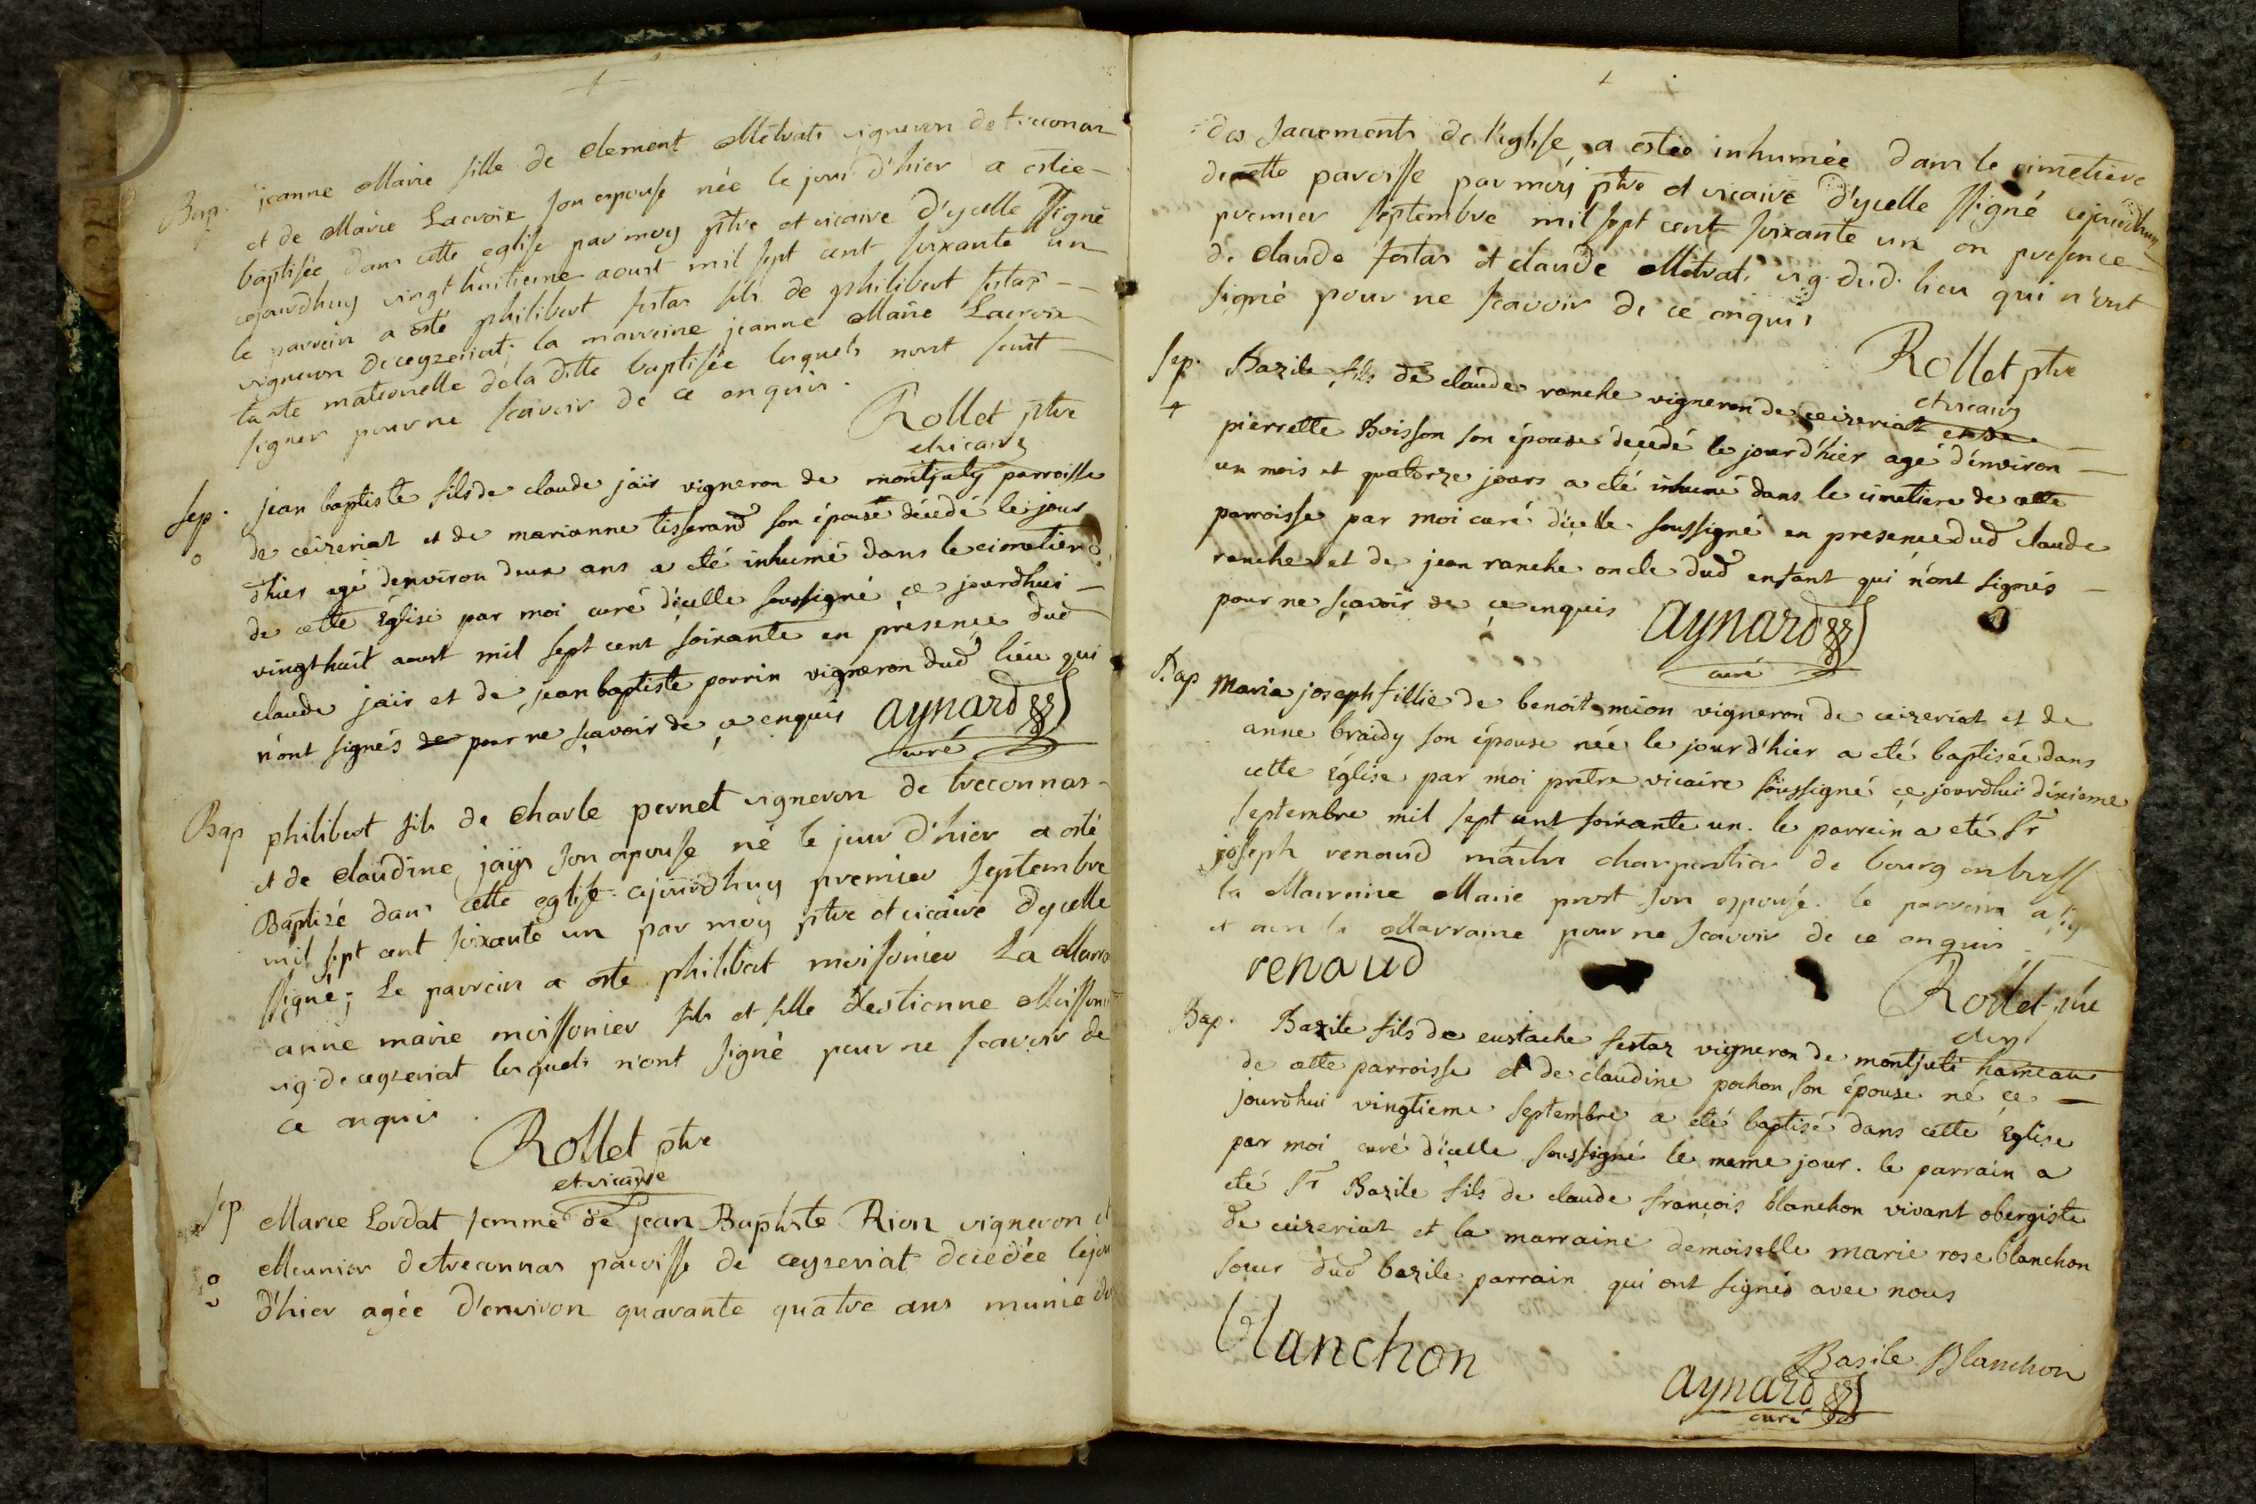 Bap. jeanne Marie fille de Clement Metrat vigneron de treconnas
et de Marie Lacroix son epouse née le jour d'hier a estee
baptisée dans cette eglise par moy ptre et vicaire d'ycelle ssigné
cejourdhuy vingt huitieme aoust mil sept cent soixante un
le parrein a esté philibert festas fils de philibert festas
vigneron de ceyzeriat, la marreine jeanne Marie Lacroix
tante maternelle de la ditte baptisée lesquels n'ont sçut
signer pour ne scavoir de ce enquis.
Rollet ptre
et vicaire
Sep. jean baptiste fils de claude jais vigneron de montjuly parroisse
de ceizeriat et de marianne tisserand son épouse décédé le jour
d'hier agé denviron deux ans a eté inhumé dans le cimetiere
de cette Eglise par moi curé dicelle soussigné ce jourdhui
vingthuit aoust mil sept cent soixante en presence dud
claude jais et de jean baptiste perrin vigneron dud lieu qui
n'ont signés de pour ne sçavoir de ce enquis aynard
curé
Bap philibert fils de Charle pernet vigneron de treconnas
et de claudine jays son epouse né le jour d'hier a esté
Baptizé dans cette eglise cejourdhuy premier septembre
mil sept cent soixante un par moy ptre et vicaire dycelle
ssigné; Le parrein a esté philibert moissonier La Marra
anne marie moissonier fils et fille d'estienne Moissoni
vig. de ceyzeriat lesquels n'ont signé pour ne scavoir de
ce enquis.
Rollet ptre
et vicaire
Sep Marie Lordat femme de jean Baptiste Rion vigneron et
Meunier de treconnas paroisse de ceyzeriat décédée lejour
d'hier agée d'environ quarante quatre ans munie des
des sacrements de l'eglise, a estée inhumée dans le cimetiere
de cette paroisse par moy ptre et vicaire d'ycelle ssigné cejourdhuy
premier septembre mil sept cent soixante un en presence
de Claude festas et claude Metrat vig. dud. lieu qui n'ont
signé pour ne scavoir de ce enquis
Rollet ptre
et vicaire
Sep. Bazile fils de claude ranche vigneron de ceizeriat et de
pierrette Buisson son épouse decedé le jour d'hier agé d'environ
un mois et quatorze jours a eté inhumé dans le cimetiere de cette
parroisse par moi curé dicelle soussigné en presence dud claude
ranche et de jean ranche oncle dud enfant qui n'ont signés
pour ne sçavoir de ce enquis aynard
curé
Bap Marie joseph fillie de benoit mion vigneron de ceizeriat et de
anne braidy son épouse née le jour d'hier a eté baptisée dans
cette Eglise par moi pretre vicaire soussigné ce jourdhui dixieme
septembre mil sept cent soixante un. le parrein a eté sr
joseph renaud maitre charpentier de bourg en bresse
la Marreine Marie prost son espouse. le parrein a signé
et non la Marraine pour ne scavoir de ce enquis
renaud
Rollet ptre
Bap. Bazile fils de eustache festaz vigneron de montjuli hameau
de cette parroisse et de claudine pochon son épouse né ce
jourdhui vingtieme septembre a eté baptisé dans cette Eglise
par moi curé dicelle soussigné le meme jour. le parrain a
eté sr Bazile fils de claude françois blanchon vivant obergiste
de ceizeriat et la marraine demoiselle marie rose blanchon
soeur dud bazile parrain qui ont signés avec nous
blanchon
Basile Blanchon
aynard
curé